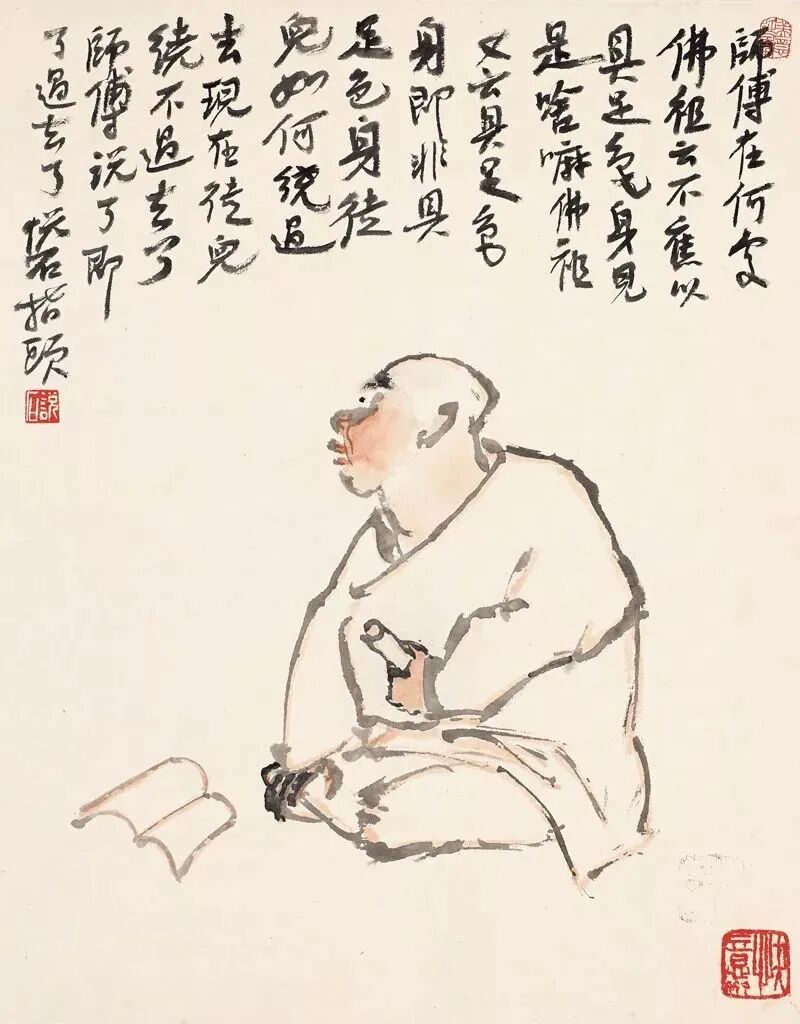 師傅在何處
佛祖云不應以
具足色身見
是啥嘛佛祖
又云具足色
身即非具
足色身徒
兒如何繞過
去現在徒兒
繞不過去了
師傅説了即
了過去了 悦石指頭